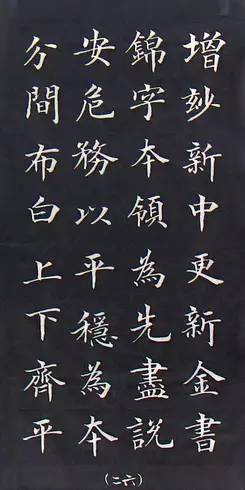 增妙新中更新金書
錦字夲領為先盡說
安危務以平穩為夲
分間布白上下齊平
(二六)